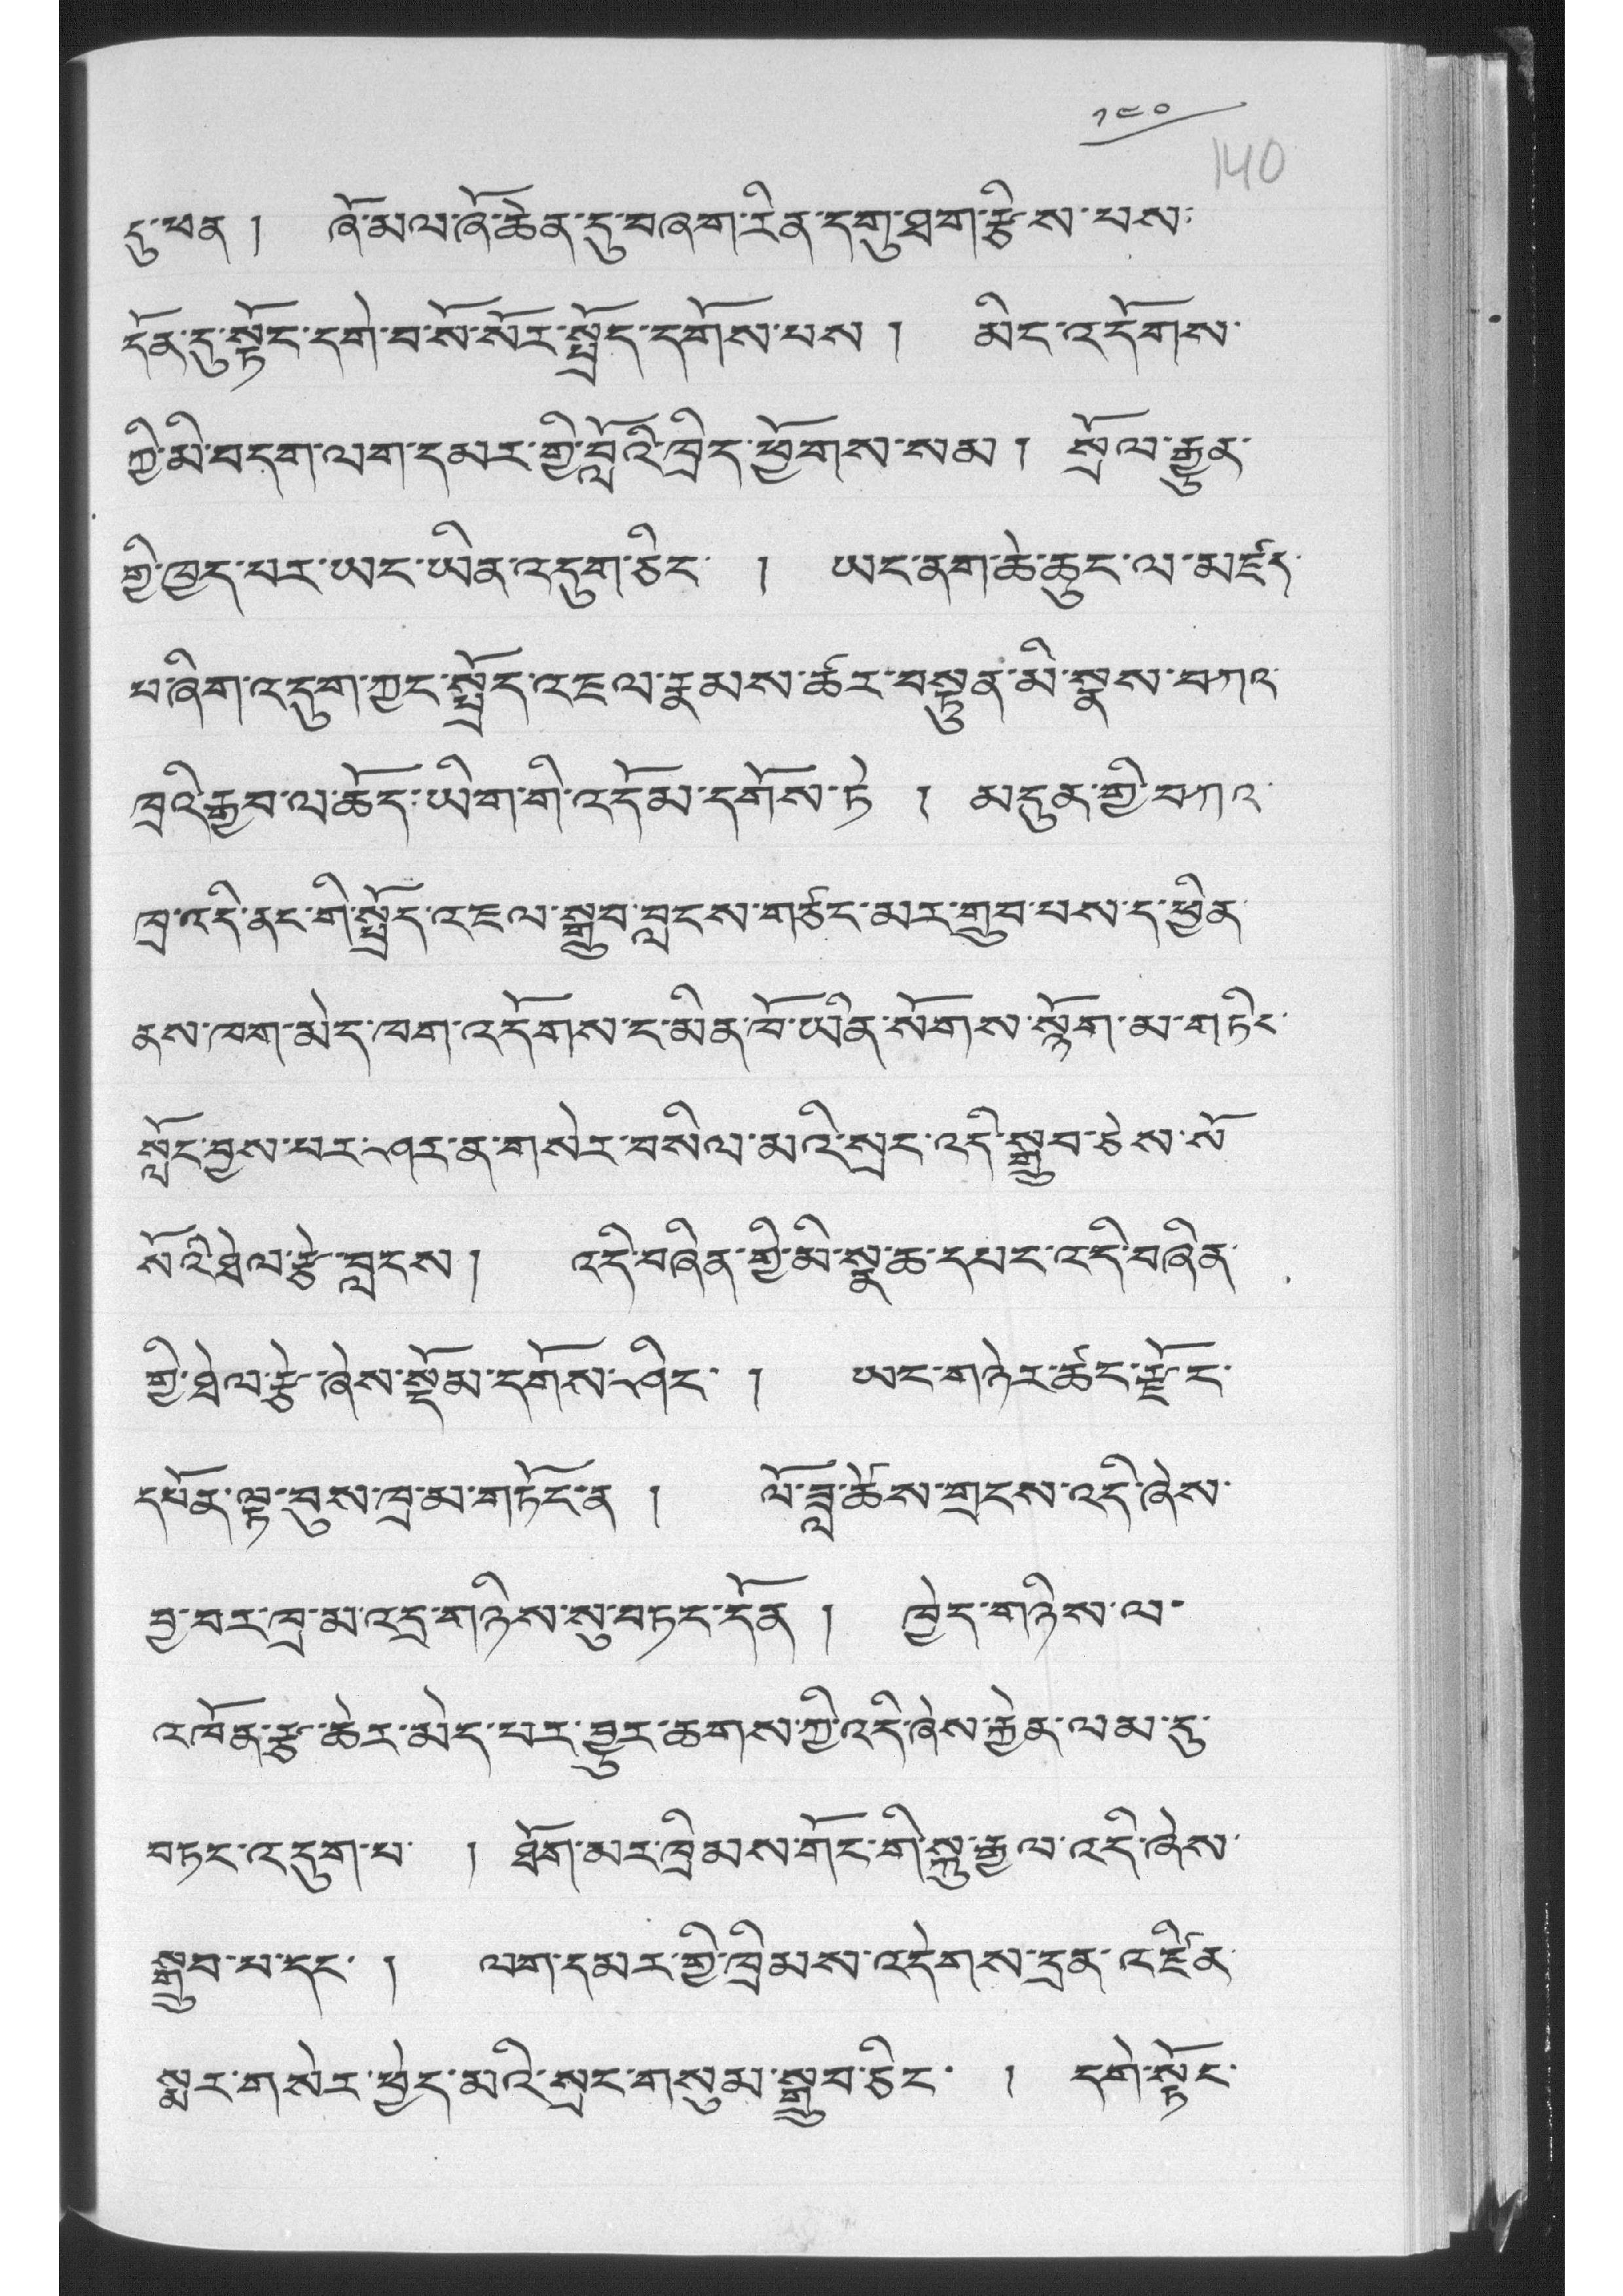 ༡༤༠
140
དུ་ཕན། ཞོ་མལ་ཞོ་ཆེན་དུ་བཞག་རིན་དགུ་ཐག་རྩིས་པས་
དོན་དུ་སྟོང་དགེ་བ་སོ་སོར་སྤྲོད་དགོས་པས། མིང་འདོགས་
ཀྱི་མི་བདག་ལག་དམར་གྱི་བློའི་ཁྲིད་ཕྱོགས་སམ། སྲོལ་རྒྱུན་
གྱི་ཁྱད་པར་ཡང་ཡིན་འདུག་ཅིང་། ཡང་ནག་ཆེ་ཆུང་ལ་མཛད་
པ་ཞིག་འདུག་ཀྱང་སྤྲོད་འཇལ་རྣམས་ཚར་བསྟུན་མི་སྣས་བཀའ་
ཁྲའི་རྒྱབ་ལ་ཆོད་ཡིག་གི་འདོམ་དགོས་ཏེ། མདུན་གྱི་བཀའ་
ཁྲ་འདི་ནང་གི་སྤྲོད་འཇལ་སྒྲུབ་བླངས་གཙང་མར་གྲུབ་པས་ད་ཕྱིན་
ནས་ཁག་མེད་ཁག་འདོགས་ང་མིན་ཁོ་ཡིན་སོགས་སྙོག་མ་གཏིང་
སློང་བྱས་པར་ཤར་ན་གསེར་བསིལ་མའི་སྲང་འདི་སྒྲུབ་ཅེས་སོ
སོའི་ཐེལ་རྩེ་བླངས། འདི་བཞིན་གྱི་མི་སྣ་ཆ་དཔང་འདི་བཞིན་
གྱི་ཐེལ་རྩེ་ཞེས་སྡོམ་དགོས་ཤིང་། ཡང་གཉེར་ཚང་རྫོང་
དཔོན་ལྟ་བུས་ཁྲ་མ་གཏོང་ན། ལོ་ཟླ་ཚེས་གྲངས་འདི་ཞེས་
བྱ་བར་ཁྲ་མ་འདྲ་གཉིས་སུ་བཏང་དོན། ཁྱེད་གཉིས་ལ་
འཁོན་རྩ་ཆེར་མེད་པར་བྱུར་ཆགས་ཀྱི་འདི་ཞེས་རྐྱེན་ལམ་དུ་
བཏང་འདུག་པ། ཐོག་མར་ཁྲིམས་གོང་གི་སྐུ་རྒྱལ་འདི་ཞེས་
སྒྲུབ་པ་དང་། ལག་དམར་གྱི་ཁྲིམས་འདེགས་དྲན་འཛིན་
སྨར་གསེར་ཕྱེད་མའི་སྲང་གསུམ་སྒྲུབ་ཅིང་། དགེ་སྟོང་